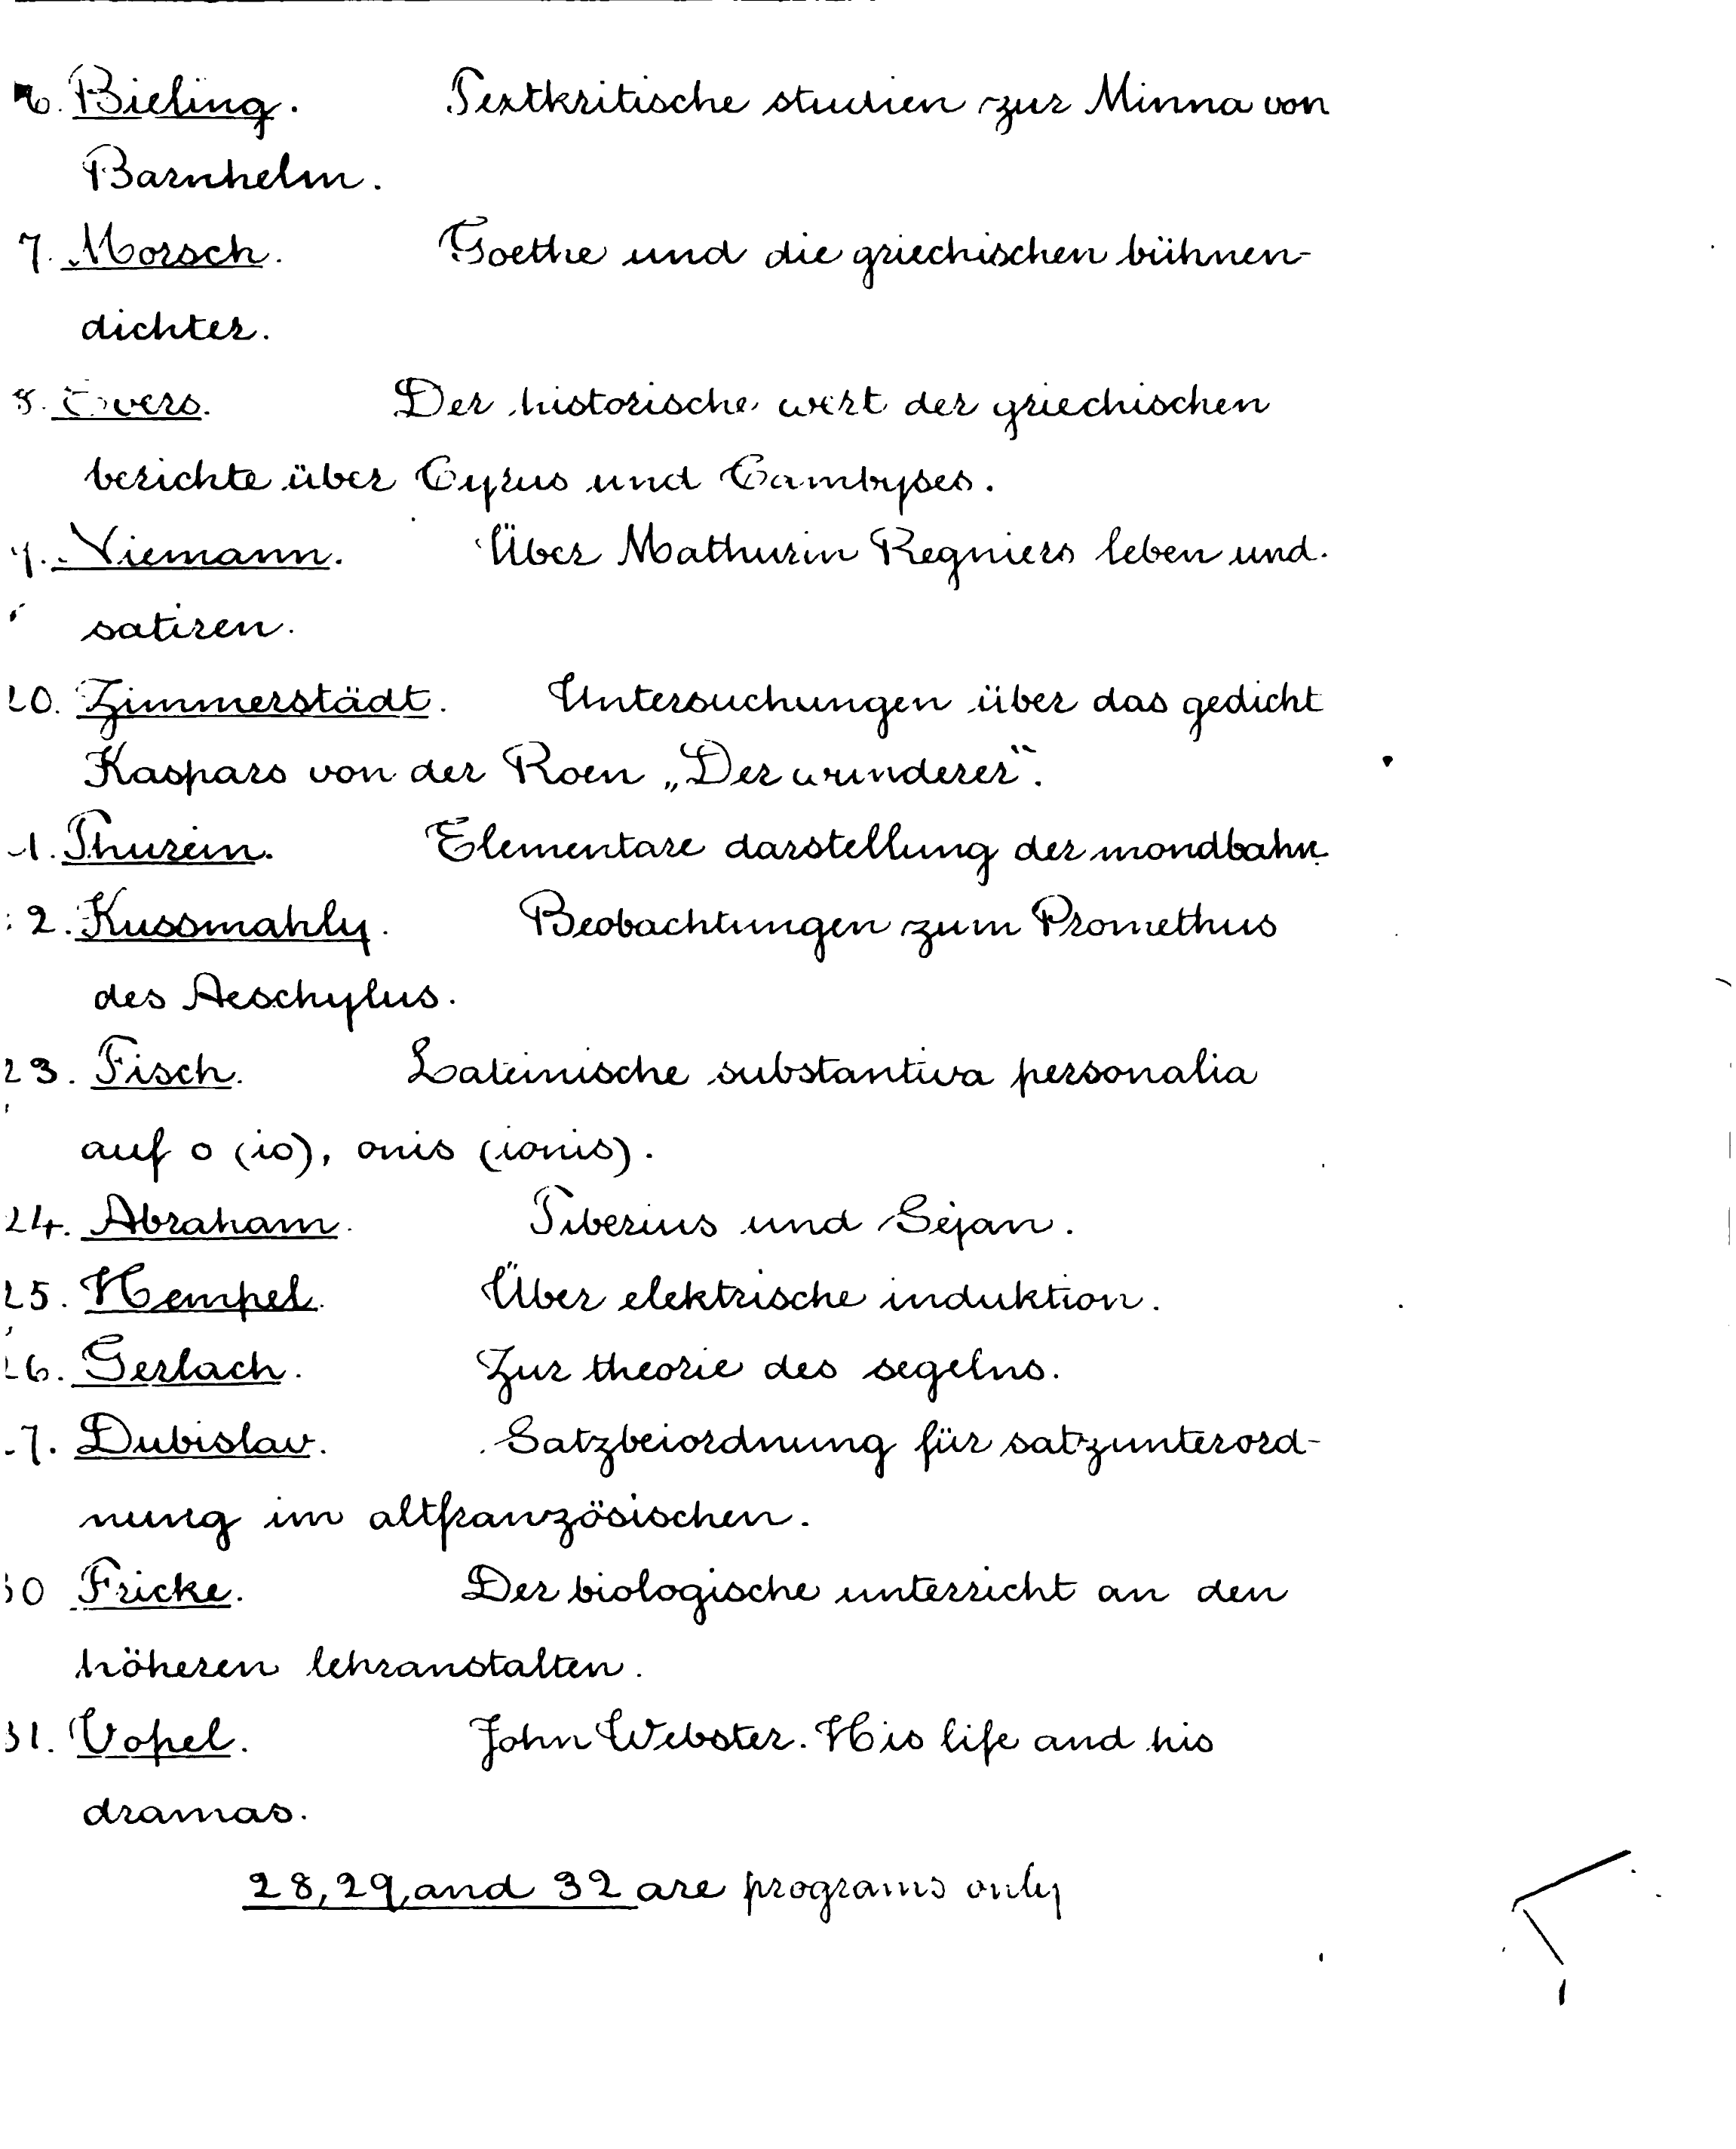 6. Bieling. Textkritische studien zur Minna von
Barnhelm.
7. Morsch. Goethe und die griechischen bühnen-
dichter.
8. Evers. Der historische wert der griechischen
berichte über Cyrus und Cambyses.
9. Niemann. Über Mathurin Regniers leben und
satiren.
20. Zimmerstädt. Untersuchungen über das gedicht
Kaspars von der Roen „Der wunderer“.
1. Thurein. Elementare darstellung der mondbahn
2. Kussmahly. Beobachtungen zum Promethus
des Aeschylus.
23. Fisch. Lateinische substantiva personalia
auf o (io), onis (ionis).
24. Abraham. Tiberius und Sejan.
25. Hempel. Über elektrische induktion.
26. Gerlach. Zur theorie des segelns.
7. Dubislav. Satzbeiordnung für satzunterord-
nung im altfranzösischen.
30 Fricke. Der biologische unterricht an den
höheren lehranstalten.
31. Vopel. John Webster. His life and his
dramas.
28, 29, and 32 are programs only